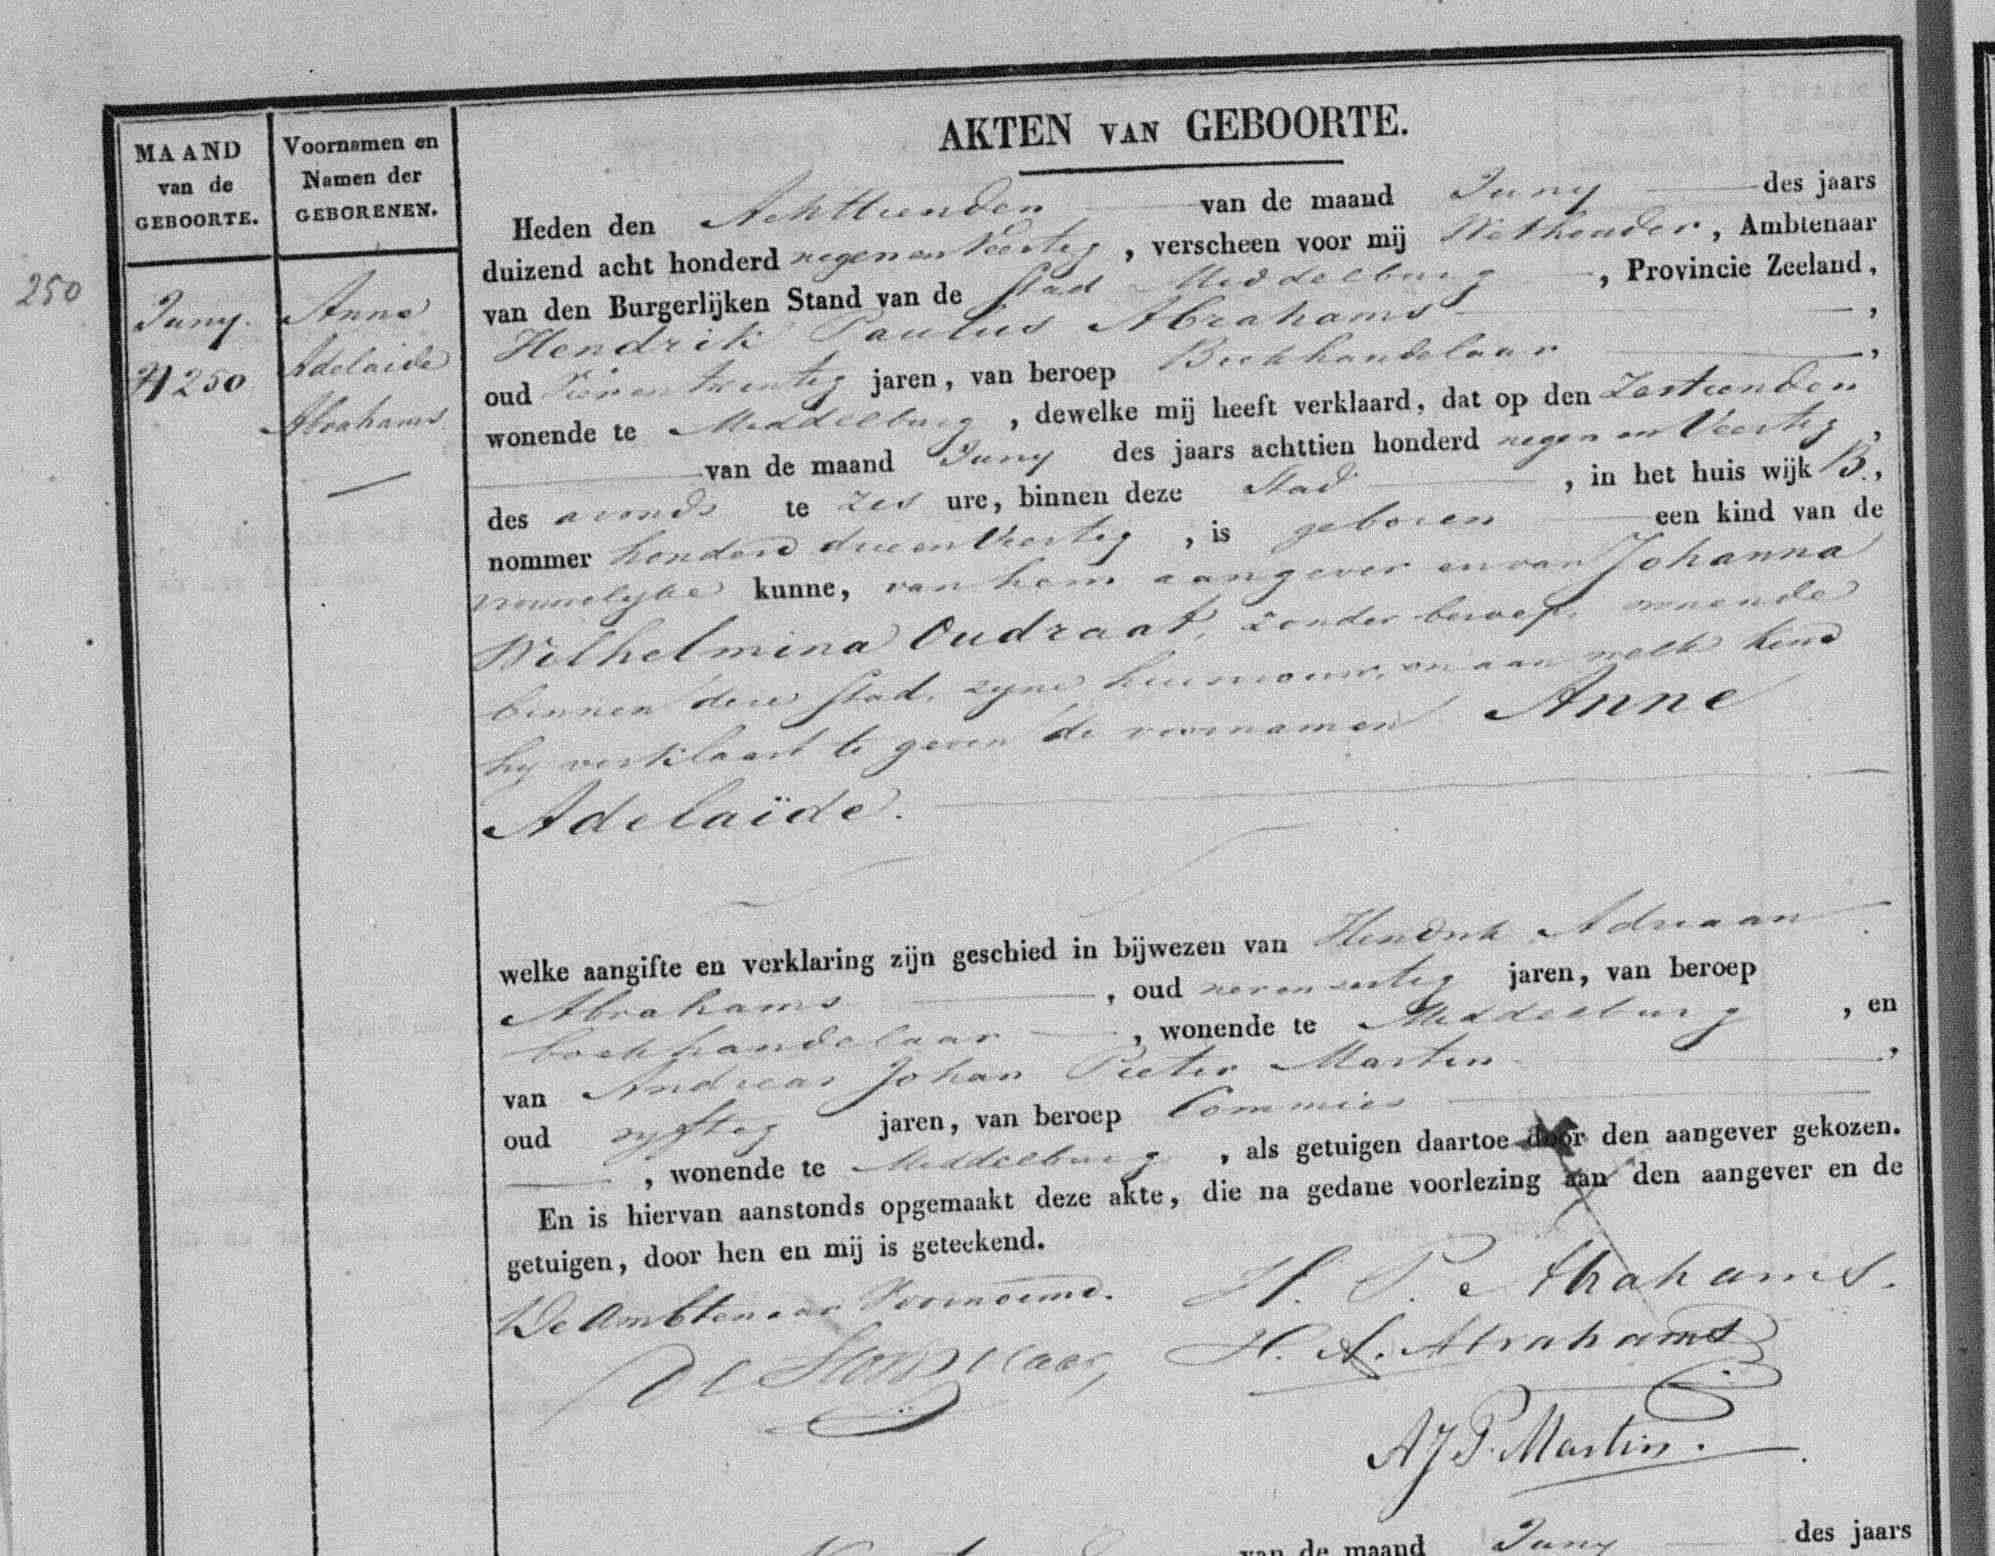 AKTEN VAN GEBOORTE.
MAAND
van de
GEBOORTE.
Voornamen en
Namen der
GEBORENEN.
250
Juny.
N 250
Anne
Adelaide
Abrahams
Heden den Achttienden van de maand Juny des jaars
duizend acht honderd negen en Veertig, verscheen voor mij Wethouder, Ambtenaar
van den Burgerlijken Stand van de Stad Middelburg, Provincie Zeeland,
Hendrik Paulus Abrahams,
oud Vier en twintig jaren, van beroep Boekhandelaar,
wonende te Middelburg, dewelke mij heeft verklaard, dat op den Zestienden
van de maand Juny des jaars achttien honderd negen en Veertig,
des avonds te zes ure, binnen deze Stad, in het huis wijk B.,
nommer honderd drie en Veertig, is geboren een kind van de
vrouwelyke kunne, van hem aangever en van Johanna
Wilhelmina Oudraat, zonder beroep, wonende
binnen deze Stad, zyne huisvrouw, en aan welk kind
hy verklaart te geven de voornamen Anne
Adelaïde.
welke aangifte en verklaring zijn geschied in bijwezen van Hendrik Adriaan
Abrahams, oud jaren, van beroep
boekhandelaar, wonende te Middelburg, en
van Andreas Johan Pieter Martin,
oud vyftig jaren, van beroep Commies
, wonende te Middelburg, als getuigen daartoe door den aangever gekozen.
En is hiervan aanstonds opgemaakt deze akte, die na gedane voorlezing aan den aangever en de
getuigen, door hen en mij is geteekend.
De Ambtenaar Voornoemd. H. P. Abrahams.
H. A. Abrahams
A J P. Martin.
van de maand Juny des jaars